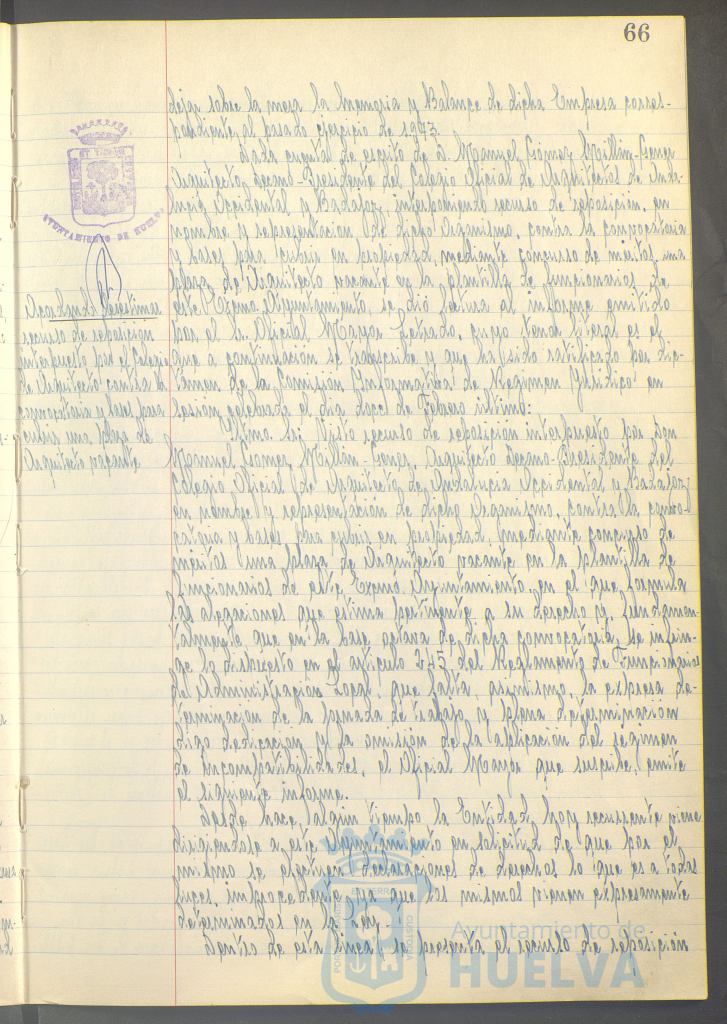 66
dejar sobre la mesa la Memoria y Balance de dicha Empresa corres-
pondiente al pasado ejercicio de 1973.
Dada cuenta de escrito de D. Manuel Gómez Millán-Gener
Arquitecto, Decano-Presidente del Colegio Oficial de Arquitectos de Anda-
lucia Occidental y Badajoz, interponiendo recurso de reposición, en
nombre y representación de dicho Organismo, contra la convocatoria
y bases para cubrir en propiedad, mediante concurso de meritos una
plaza de Arquitecto vacante en la plantilla de funcionarios de
este Excmo. Ayuntamiento, se dió lectura al informe emitido
por el Sr. Oficial Mayor Letrado, cuyo tenor literal es el
que a continuación se transcribe y que ha sido ratificado por dic-
tamen de la Comisión Informativa de Régimen Jurídico en
sesión celebrada el dia doce de Febrero último:
AYUNTAMIENTO DE HUELVA
Acordando desestimar
recurso de reposición
interpuesto por el Colegio
de Arquitectos contra la
convocatoria y bases para
cubrir una plaza de
Arquitecto vacante
Iltmo. Sr: Visto recurso de reposición interpuesto por Don
Manuel Gomez Millán-Gener, Arquitecto Decano-Presidente del
Colegio Oficial de Arquitectos de Andalucia Occidental y Badajoz
en nombre y representación de dicho Organismo, contra la convo-
catoria y bases para cubrir en propiedad, mediante concurso de
meritos una plaza de Arquitecto vacante en la plantilla de
funcionarios de este Excmo Ayuntamiento, en el que formula
las alegaciones que estima pertinente a su derecho y fundamen-
talmente que en la base octava de dicha convocatoria, se infrin-
ge lo dispuesto en el artículo 245 del Reglamento de Funcionarios
de Administracion Local, que falta, asimismo, la expresa de-
terminacion de la jornada de trabajo y plena determinación
digo dedicacion y la omisión de la aplicación del regimen
de incompatibilidades, el Oficial Mayor que suscribe, emite
el siguiente informe:
Desde hace algún tiempo la Entidad hoy recurrente viene
dirigiendose a este Ayuntamiento en solicitud de que por el
mismo se efectuen declaraciones de derechos lo que es a todas
luces improcedente ya que los mismos vienen expresamente
determinados en la Ley.
Dentro de esta linea, se presenta el recurso de reposición
Ayuntamiento de
HUELVA